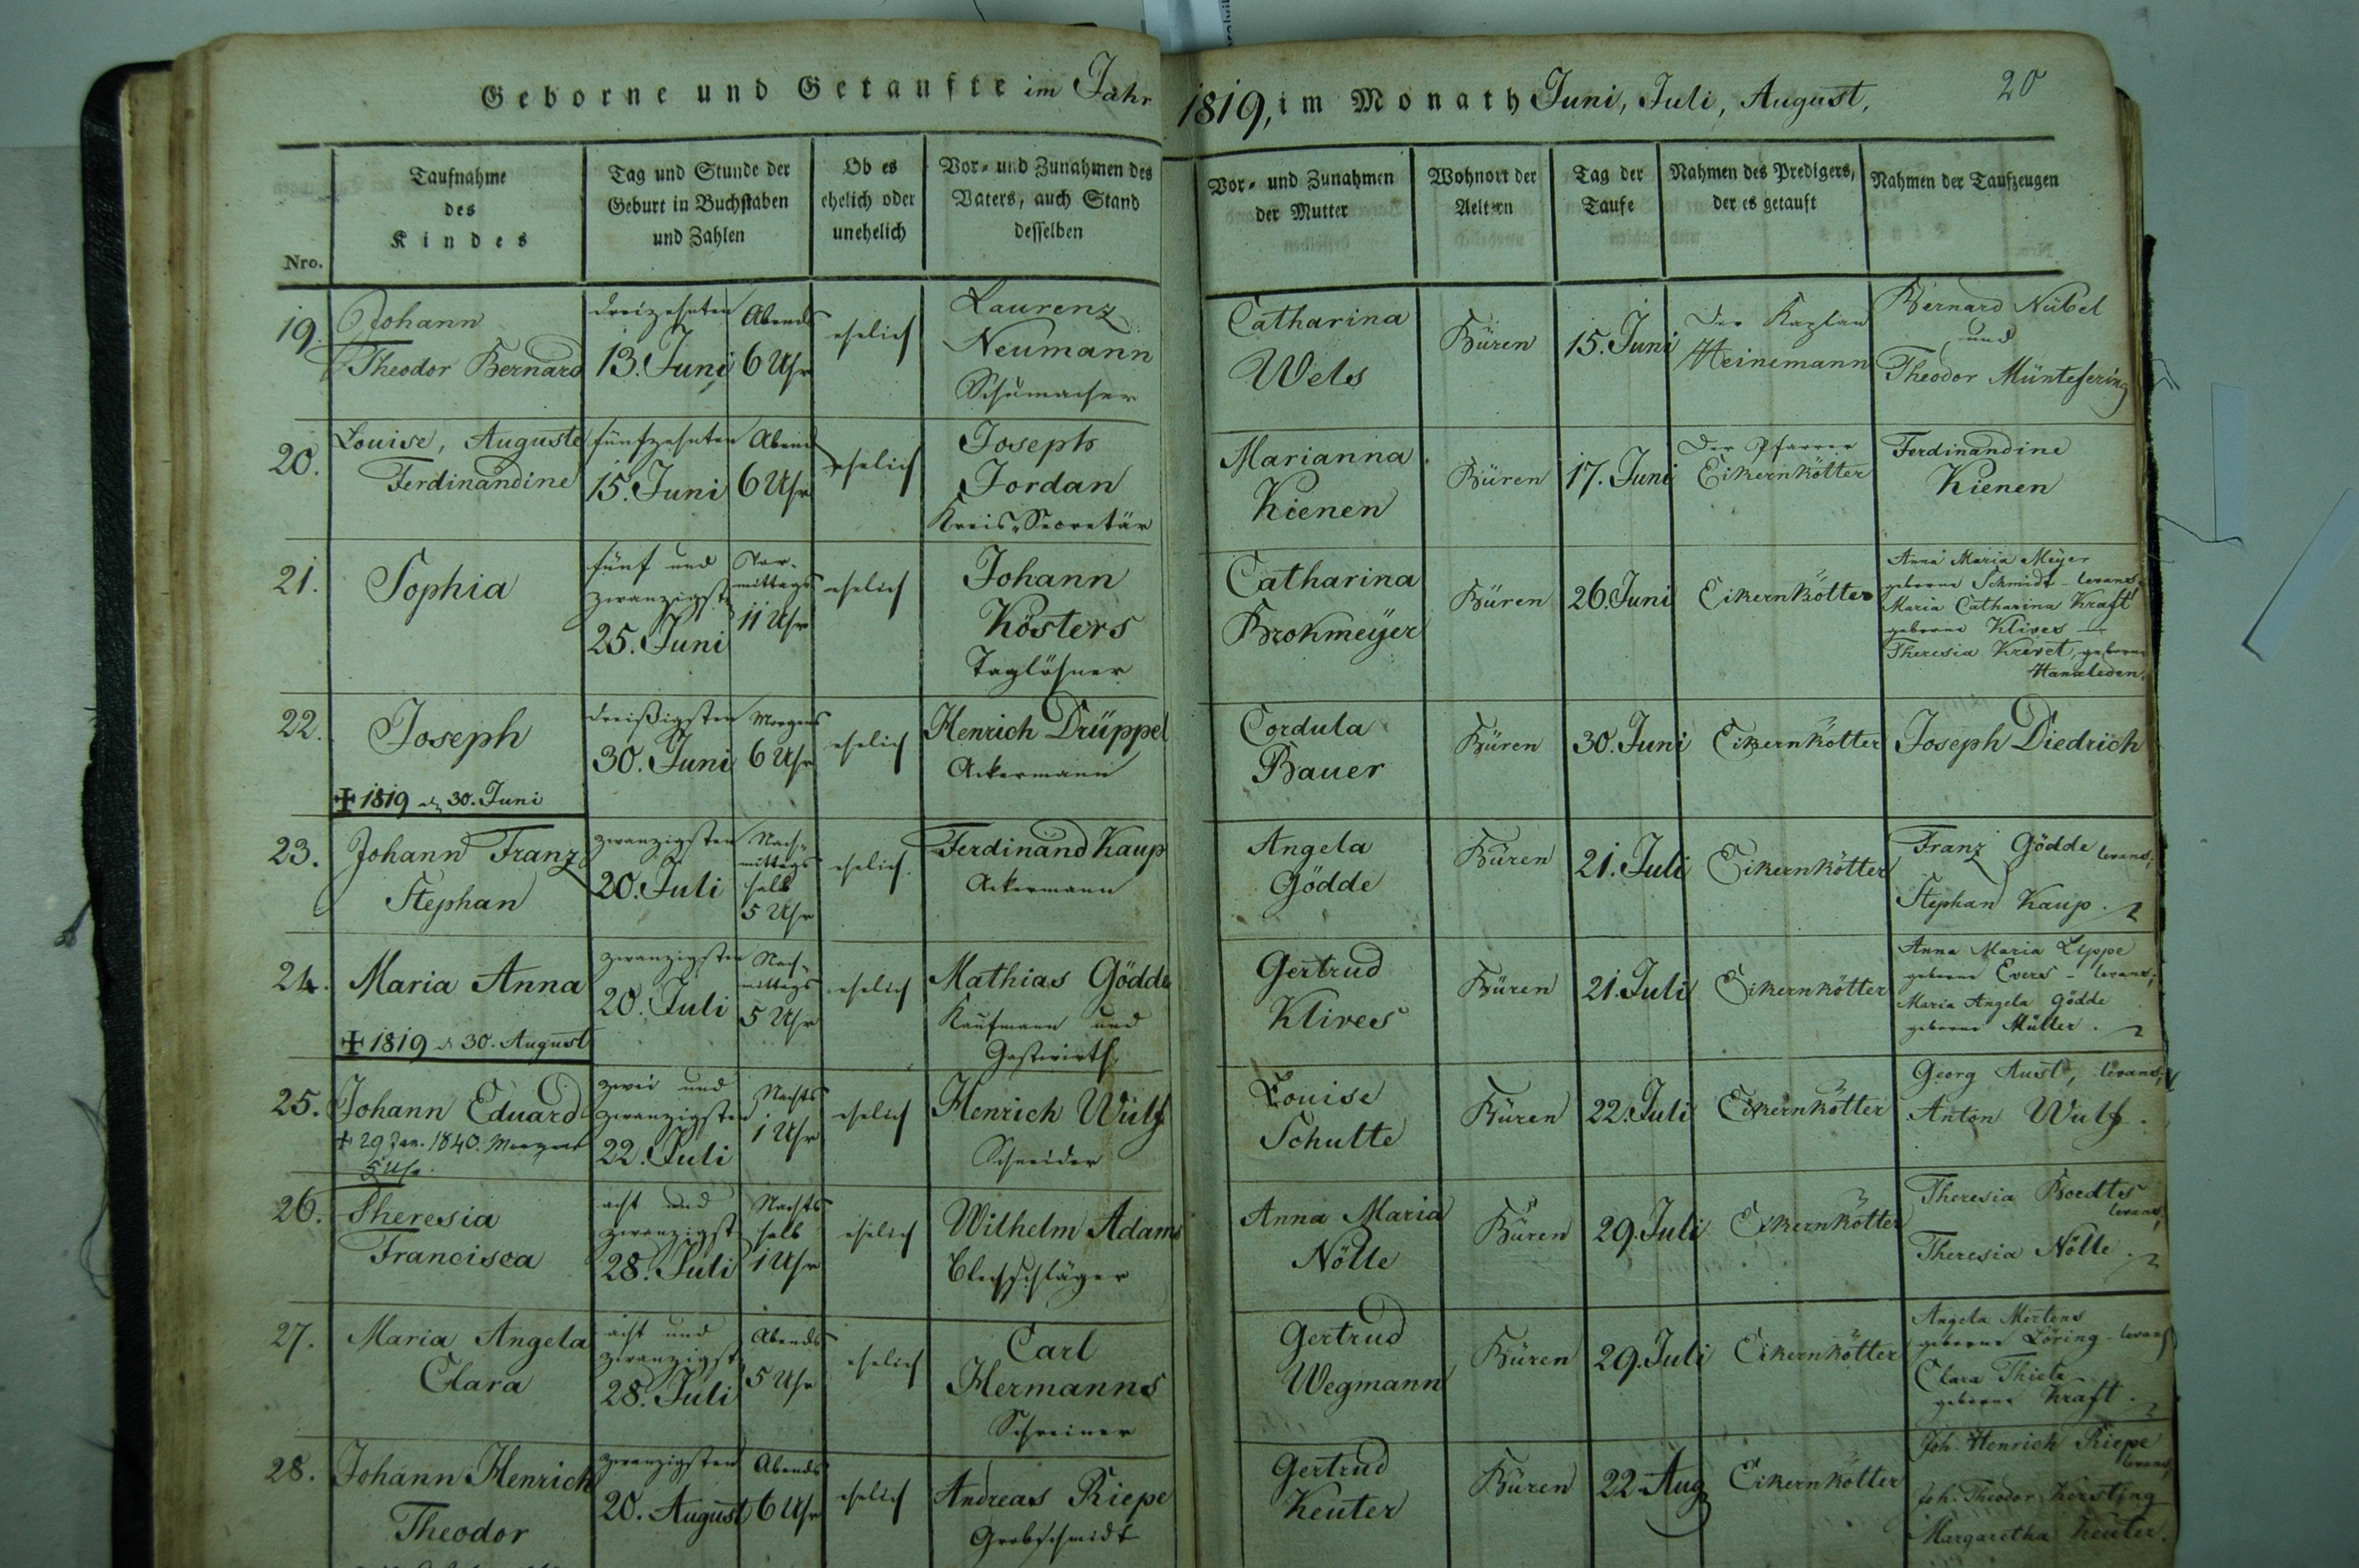 Geborne und Getaufte im Jahr 1819, im Monath Juni, Juli, August,
20
Nro.
Taufnahme
des
Kindes
Tag und Stunde der
Geburt in Buchstaben
und Zahlen
Ob es
ehelich oder
unehelich
Vor- und Zunahmen des
Vaters, auch Stand
desselben
Vor- und Zunahmen
der Mutter
Wohnort der
Aeltern
Tag der
Taufe
Nahmen des Predigers,
der es getauft
Nahmen der Taufzeugen
19.
Johann
Theodor Bernard
dreizehnten
13. Juni
Abends
6 Uhr
ehelich
Laurenz
Neumann
Schumacher
Catharina
Wels
Büren
15. Juni
Der Kaplan
Heinemann
Bernard Nübel
und
Theodor Müntefering
20.
Louise, Auguste
Ferdinandine
fünfzehnten
15. Juni
Abend
6 Uhr
ehelich
Joseph
Jordan
Kreis-Secretär
Marianna
Kienen
Büren
17. Juni
Der Pfarrer
Eikernkötter
Ferdinandine
Kienen
21.
Sophia
fünf und
zwanzigst
25. Juni
Vor-
mittags
11 Uhr
ehelich
Johann
Kösters
Taglöhner
Catharina
Brokmeÿer
Büren
26. Juni
Eikernkötter
Anna Maria Meyer
geborne Schmidt - levans;
Maria Catharina Kraft
geborne Klives
Theresia Krevet, geborne
22.
Joseph
✠ 1819 d. 30. Juni
dreißigsten
30. Juni
Morgens
6 Uhr
ehelich
Henrich Drüppel
Ackermann
Cordula
Bauer
Büren
30. Juni
Eikernkötter
Joseph Diedrich
23.
Johann Franz
Stephan
zwanzigsten
20. Juli
Nach-
mittags
halb
5 Uhr
ehelich
Ferdinand Kaup
Ackermann
Angela
Gödde
Büren
21. Juli
Eikernkötter
Franz Gödde levans;
Stephan Kaup.
24.
Maria Anna
✠ 1819 d. 30. August
zwanzigsten
20. Juli
Nach-
mittags
5 Uhr
ehelich
Mathias Gödde
Kaufmann und
Gastwirth
Gertrud
Klives
Büren
21. Juli
Eikernkötter
Anna Maria Lippe
geborne Evers - levans;
Maria Angela Gödde
geborne Müller.
25.
Johann Eduard
+ 29 Jan. 1840. Morgens
5 Uhr.
zwei und
zwanzigsten
22. Juli
Nachts
1 Uhr
ehelich
Henrich Wulf
Schneider
Louise
Schulte
Büren
22. Juli
Eikernkötter
Georg Aust, levans;
Anton Wulf.
26.
Theresia
Francisca
acht und
zwanzigst
28. Juli
Nachts
halb
1 Uhr
ehelich
Wilhelm Adams
Blechschläger
Anna Maria
Nölle
Büren
29. Juli
Eikernkötter
Theresia Boedts
levans,
Theresia Nölle.
27.
Maria Angela
Clara
acht und
zwanzigst
28. Juli
Abends
5 Uhr
ehelich
Carl
Hermanns
Schreiner
Gertrud
Wegmann
Büren
29. Juli
Eikernkötter
Angela Mertens
geborne Löring - levans
Clara Thiele
geborne Kraft.
28.
Johann Henrich
Theodor
zwanzigsten
20. August
Abends
6 Uhr
ehelich
Andreas Riepe
Grobschmidt
Gertrud
Keuter
Büren
22 Aug
Eikernkötter
Joh. Henrich Riepe
levans,
Joh. Theodor Kersting
Margaretha Keuter.